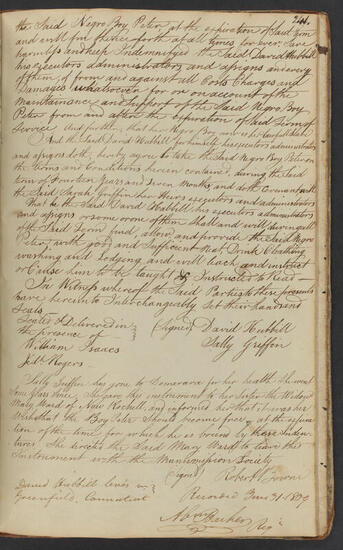 241.
the Said Negro Boy Peter at the expiration of Said Term
and will from thence forth at all times for ever Save
harmless and keep Indemnified the Said David Hubbill
his executors administrators and assigns and every
of them, of from and against all Costs Charges and
Damages whatsoever for or on account of the
Maintainance and Support of the Said Negro Boy
Peter from and after the expiration of Said Term of
Service And further, that her Negro Boy
And the Said David Hubbill for himself his executors administrators
and assigns doth hereby agree to take the Said Negro Boy Peter on
the Terms and Conditions herein contained, during the Said
Term of Fourteen Years and Seven Months, and doth Covenant with
the Said Sarah Griffin her Heirs executors and administrators
That he the Said David Hubbill, his executors administrators
and assigns or some or one of them Shall and will during all
of the Said Term find, allow and provide the Said Negro
Peter, with good and Sufficient Meat Drink Cloathing
washing and Lodging, and will teach and instruct
or Cause him to be taught & Instructed to Read
In Witness whereof the Said Parties to these presents
have hereunto Interchangeably Set their hands and
Seals
Sealed & Delivered in
the presence of
William Isaacs
Rogers
(signed) David Hubbill
Sally Griffin
Sally Griffin has gone to Demerara for her health She went
Some Years Since. She gave this instrument to her Sister the Widow
Mary Ward of New Rochell, and informed her that it was her
Wish that the Boy Peter Should become free, at the expira-
tion of the time for which he is bound by these Inden-
tures She directs the Said Mary Ward to leave the
Instrument with the Manumission Society
(signed) Robert Bowne
David Hubbill lives in
Greenfield, Connecticut
Recorded 31 1809
Regr